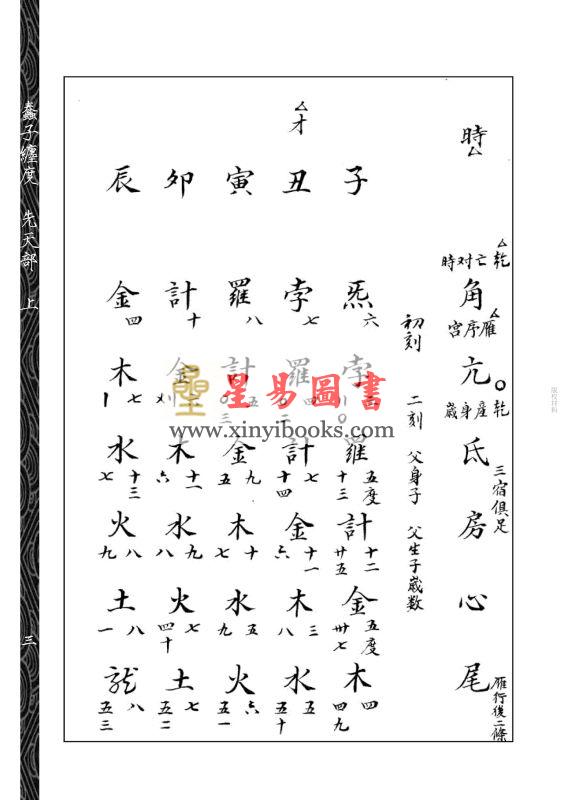 時
乾亡对時
角
雁序宮
亢
乾產身歲
氐
三宿俱足
房
心
尾
雁行後二條
初刻 二刻 父身子 父生子歲数
子
炁
六
孛
羅
五度
十三
計
十二
廿五
金
五度
卅七
木
四
四九
才
丑
孛
七
羅
四
計
七
十四
金
十一
六
木
三
八
水
五
五十
寅
羅
八
計
五
三
金
九
五
木
十
七
水
五
九
火
六
五一
卯
計
十
金
木
十一
六
水
九
八
火
七
四十
土
七
五二
辰
金
四
木
七
水
十三
七
火
八
九
土
八
一
龍
八
五三
蠢子纏度 先天部 上
三
星易圖書
www.xinyibooks.com
版权材料